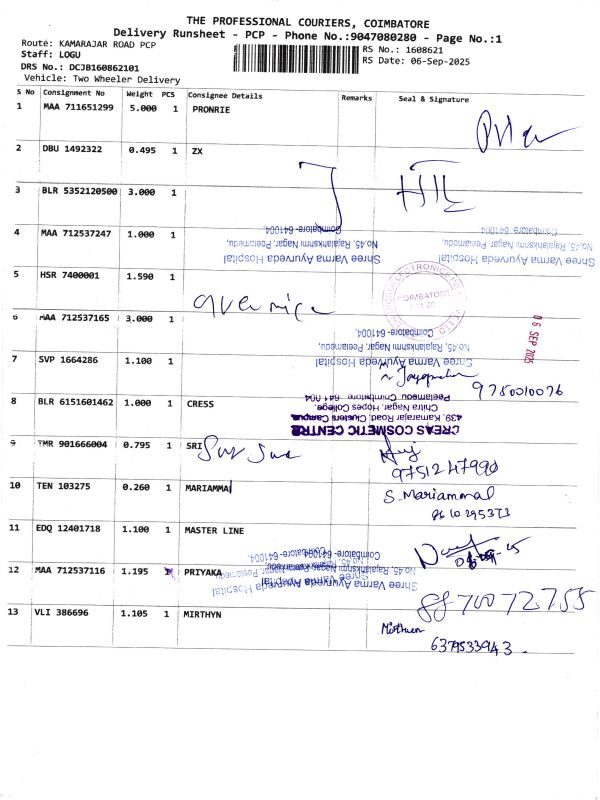 THE PROFESSIONAL COURIERS, COIMBATORE
Delivery Runsheet - PCP - Phone No.:9047080280 - Page No.:1
Route: KAMARAJAR ROAD PCP
RS No.: 1608621
Staff: LOGU
RS Date: 06-Sep-2025
DRS No.: DCJB160862101
Vehicle: Two Wheeler Delivery
S No Consignment No Weight PCS Consignee Details Remarks Seal & Signature
1 MAA 711651299 5.000 1 PRONRIE
2 DBU 1492322 0.495 1 ZX
3 BLR 5352120500 3.000 1
4 MAA 712537247 1.000 1
Shree Varma Ayurveda Hospital
No.45, Rajalakshmi Nagar, Peelamedu,
Coimbatore- 641004.
Shree Varma Ayurveda Hospital
No.45, Rajalakshmi Nagar, Peelamedu,
Coimbatore- 641004.
5 HSR 7400001 1.590 1
COIMBATORE
6 MAA 712537165 3.000 1
06 SEP 2025
Shree Varma Ayurveda Hospital
No.45, Rajalakshmi Nagar, Peelamedu,
Coimbatore- 641004.
7 SVP 1664286 1.100 1
9780010076
8 BLR 6151601462 1.000 1 CRESS
CREAS COSMETIC CENTRE
439, Kamarajar Road, Cluster Campus
Chitra Nagar, Hopes College,
Peelamedu, Coimbatore 641 004
9 TMR 901666004 0.795 1 SRI
9751247990
10 TEN 103275 0.260 1 MARIAMMAL
S. Mariammal
8610295373
11 EDQ 12401718 1.100 1 MASTER LINE
12 MAA 712537116 1.195 1 PRIYAKA
Shree Varma Ayurveda Hospital
No.45, Rajalakshmi Nagar, Peelamedu,
Coimbatore- 641004.
8870072755
13 VLI 386696 1.105 1 MIRTHYN
6379533943